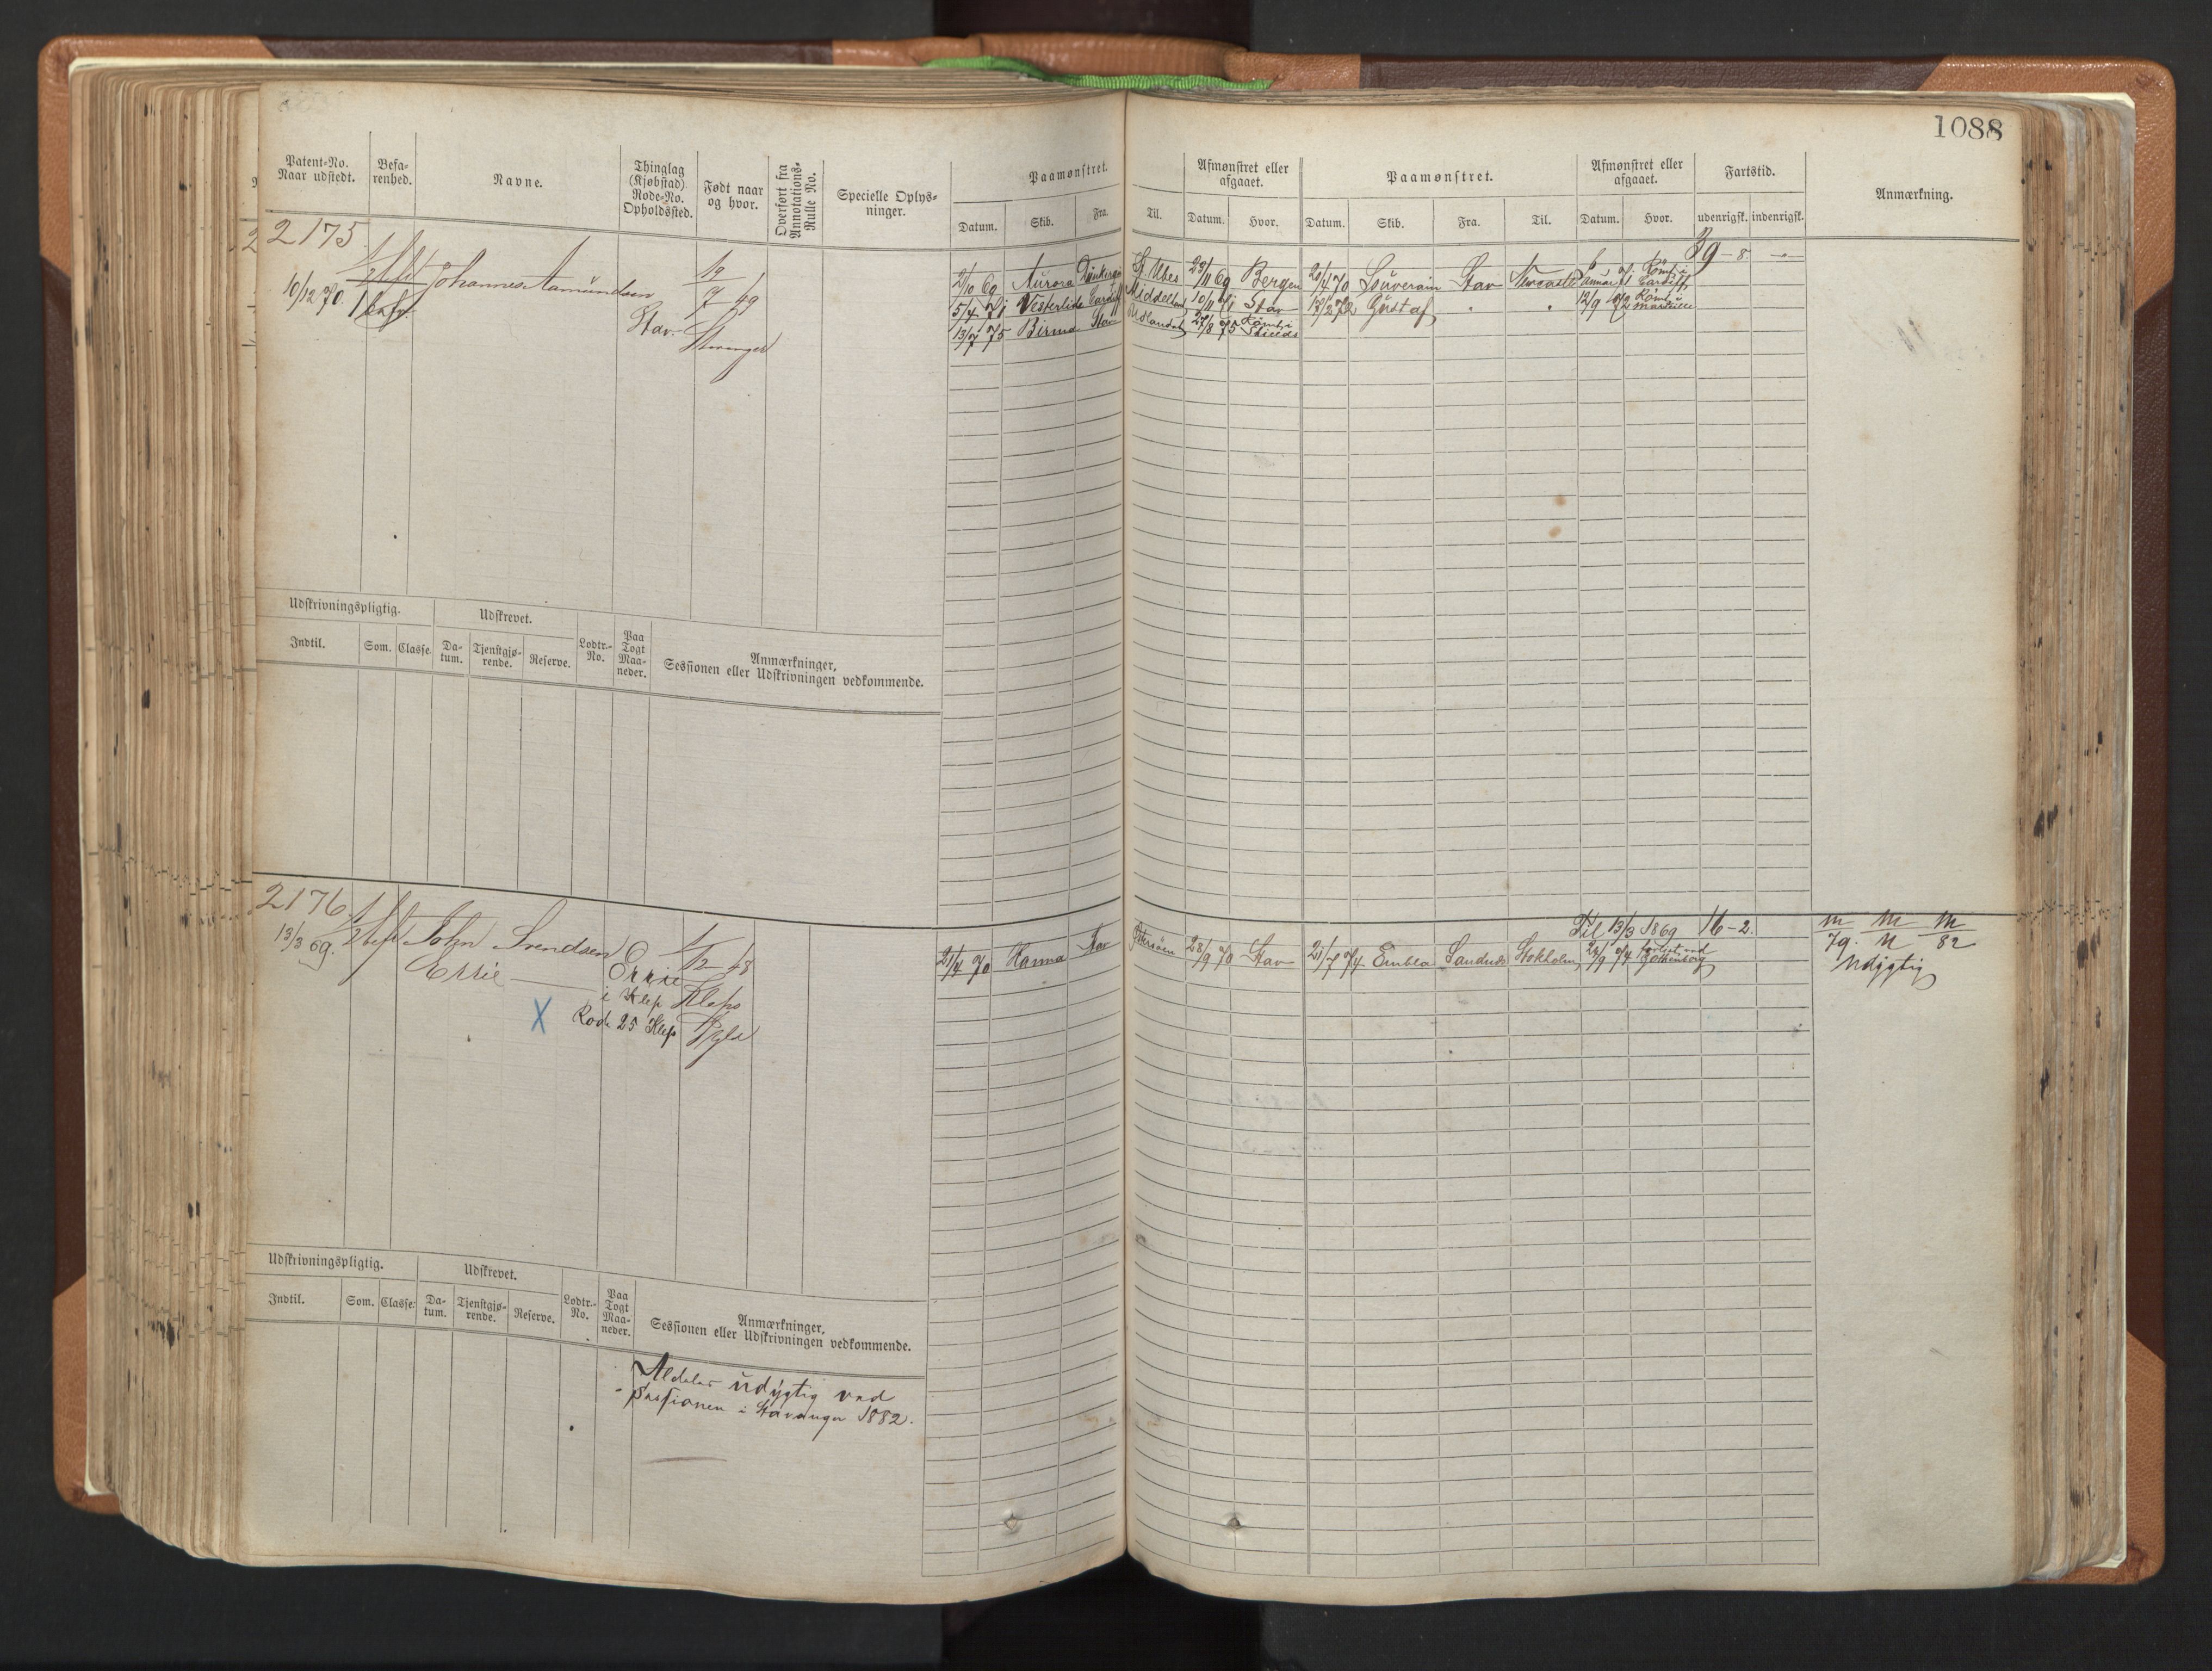 1088
Patent-No.
Naar udstedt.
Befa-
renhed.
Navne.
Thinglag
(Kjøbstad)
Rode-No.
Opholdssted.
Født naar
og hvor.
Overført fra
Annotations-
Rulle No.
Specielle Oplys-
ninger.
Paamønstret.
Datum. Skib. Fra.
Til.
Afmønstret eller
afgaaet.
Datum. Hvor.
Paamønstret.
Datum. Skib. Fra. Til.
Afmønstret eller
afgaaet.
Datum. Hvor.
Fartstid.
udenrigsk. indenrigsk.
Anmærkning.
2175
10/12 70.
Johannes Aamundsen
Stav.
12/7 49
Stavanger
39 - 8
2/10 69 Aurora
29/11 69 Bergen 20/4 70 Souverain Stav
Cardiff
5/4 71 Vesterlide Cardiff
10/11 71 Stav 13/2 72 Gustaf " " 12/9 72
13/7 75 Birma Stav Udlandet 27/8 75 Rømt i
Shields
Udskrivningspligtig.
Udskrevet.
Indtil. Som. Classe. Da-
tum. Tjenstgjø-
rende. Reserve.
Lodtr.-
No.
Paa
Togt
Maa-
neder.
Anmærkninger,
Sessionen eller Udskrivningen vedkommende.
2176
13/3 69.
John Svendsen
Errie
Errie
i Klep
Rode 25 Klep
1/12 48
Klep
Til 13/3 1869 16 - 2.
21/4 70 Hanna Stav
28/9 70 Stav 21/7 74 Embla Sandnes Stokholm 22/9 74 forlist ved
Gothenborg
m m m
79. N 82
Udygtig
X
Udskrivningspligtig.
Udskrevet.
Indtil. Som. Classe. Da-
tum. Tjenstgjø-
rende. Reserve.
Lodtr.-
No.
Paa
Togt
Maa-
neder.
Anmærkninger,
Sessionen eller Udskrivningen vedkommende.
Aldeles udygtig ved
Sessionen i Stavanger 1882.